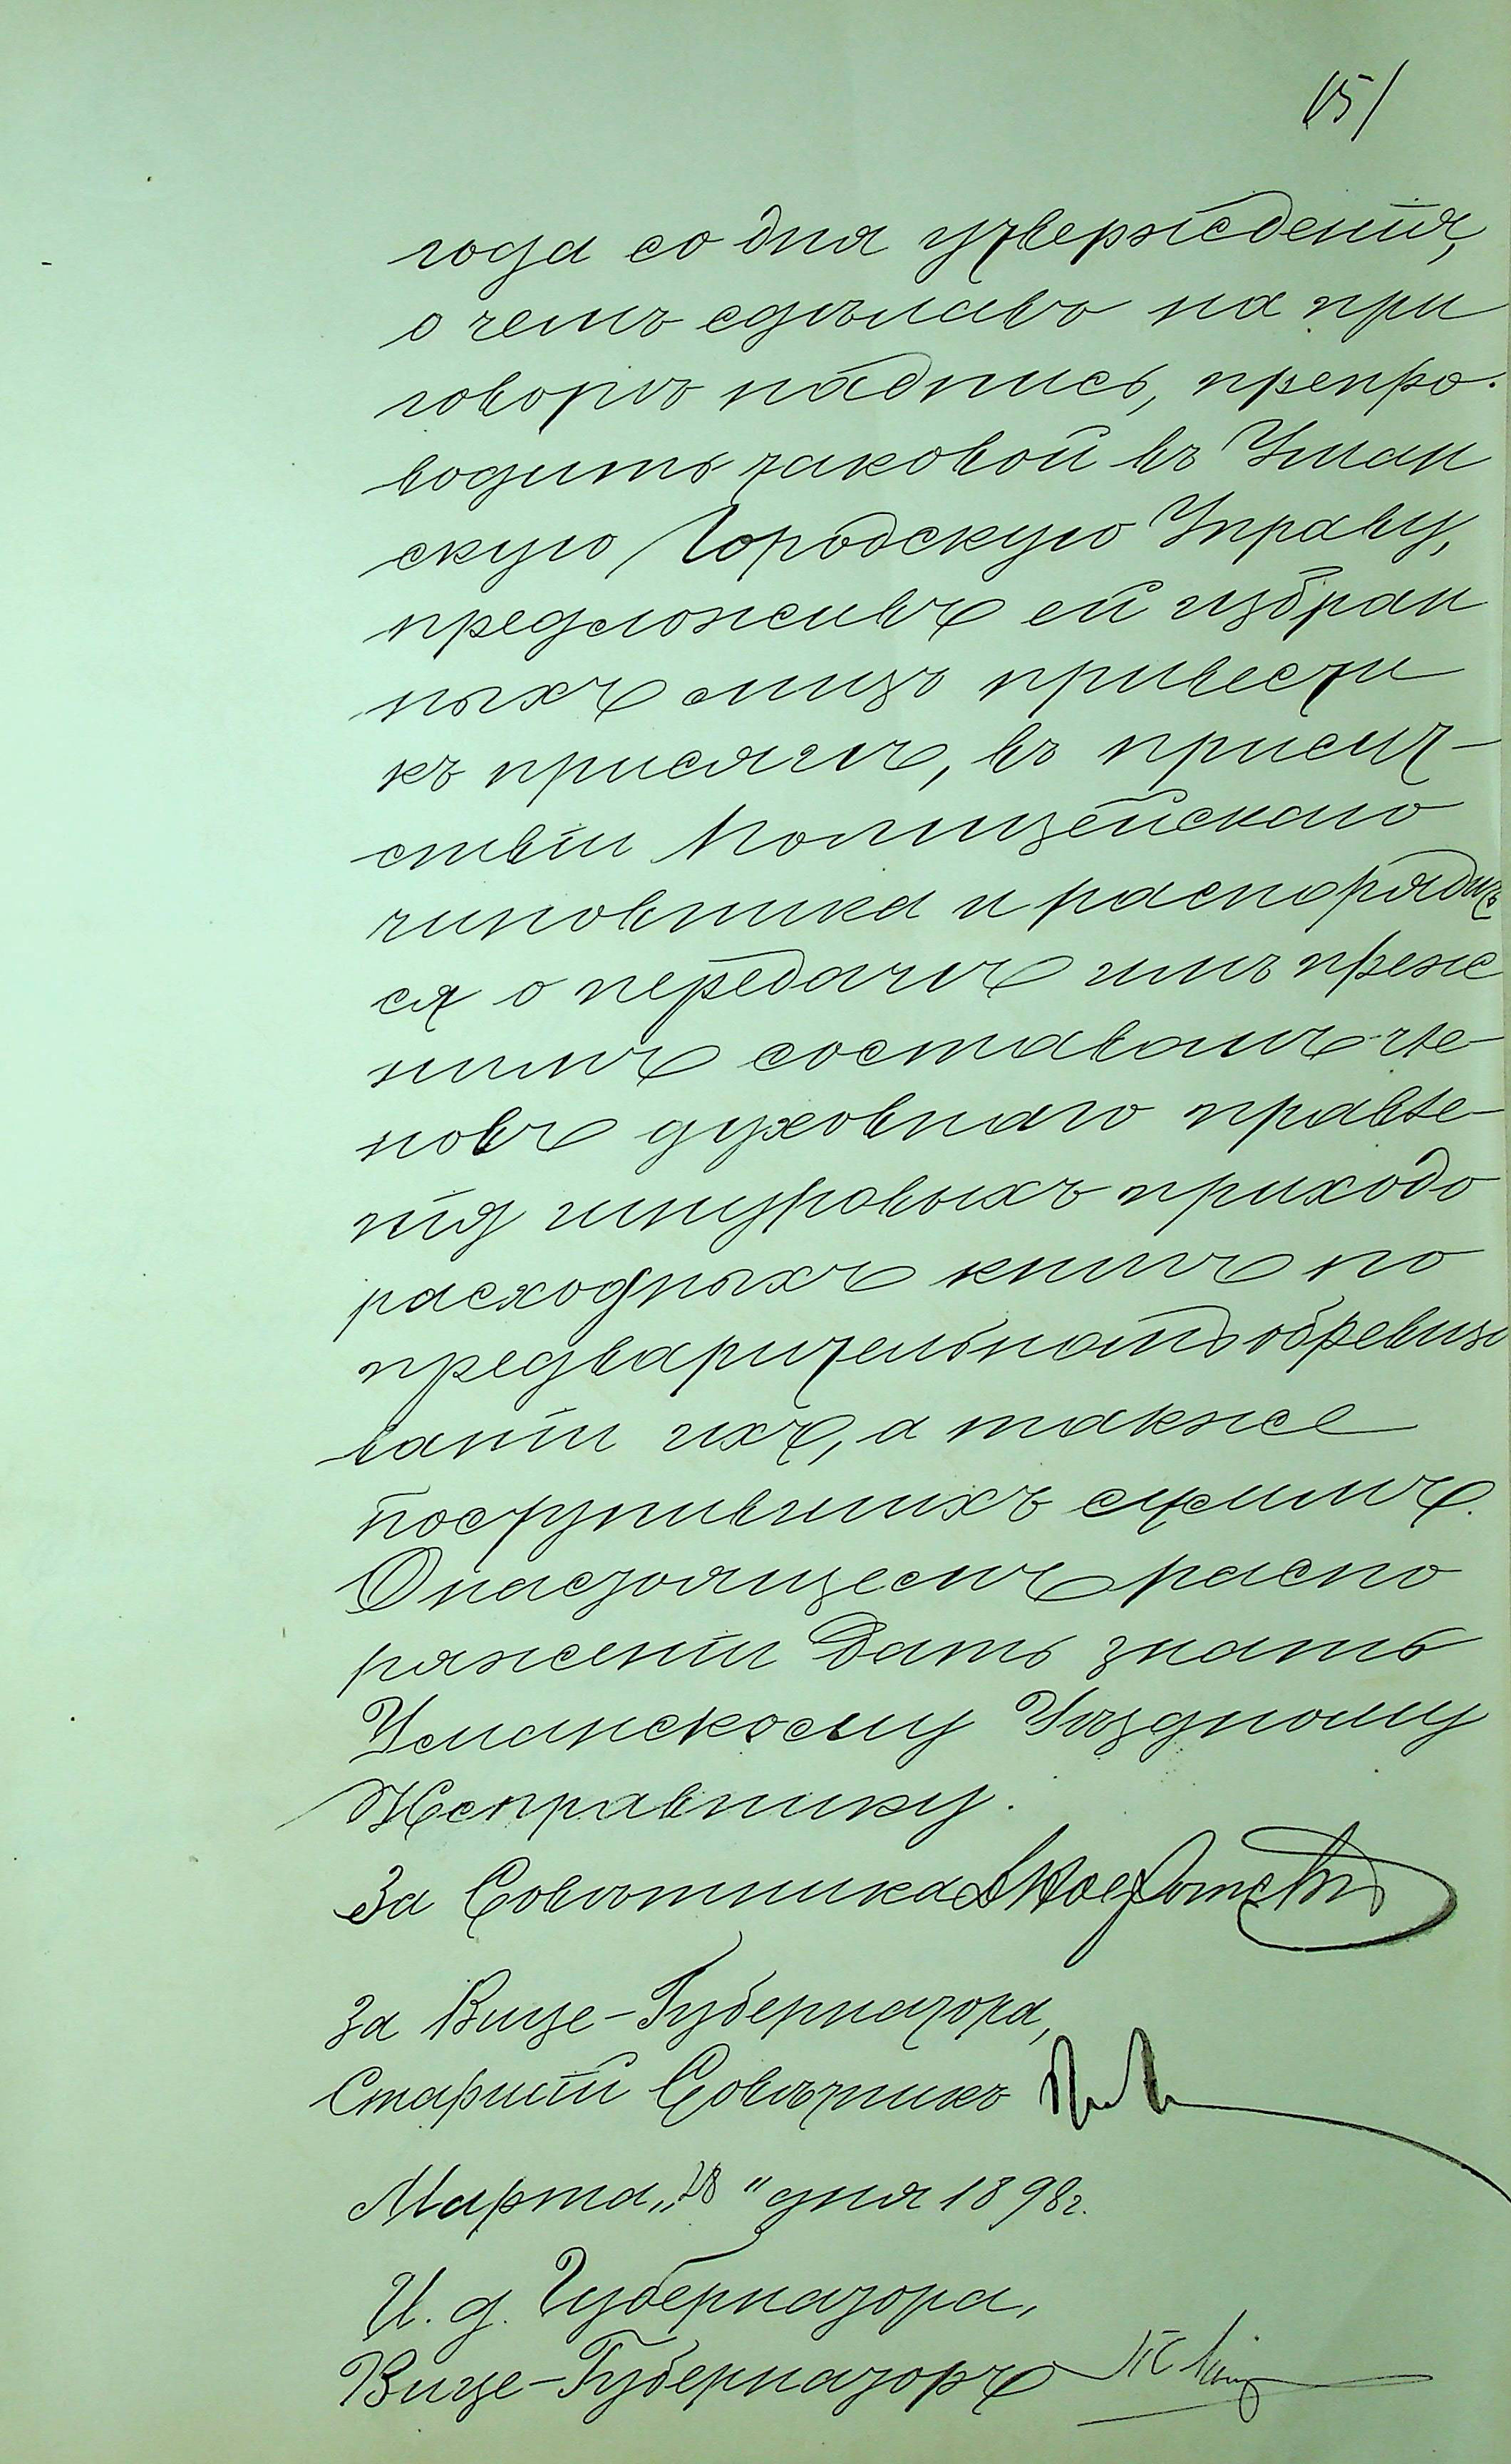 151
года со дня утвержденія,
о чемъ сдѣлавъ на при
говорѣ надпись, препро-
водить таковой въ Уман
скую Городскую Управу,
предложивъ ей избран
ныхъ лицъ привести
къ присягѣ, въ присут-
ствіи Полицейскаго
чиновника и распорядить
ся о передачѣ имъ преж
нимъ составомъ чле-
новъ духовнаго правле-
нія шнуровыхъ приходо
расходныхъ книгъ по
предварительномъ обревизо
ваніи ихъ, а также
поступившихъ суммъ.
О настоящемъ распо
ряженіи дать знать
Уманскому Уѣздному
Исправнику.
За Совѣтника
За Вице-Губернатора,
Старшій Совѣтникъ
Марта „28" дня 1898 г.
И. д. Губернатора,
Вице-Губернаторъ